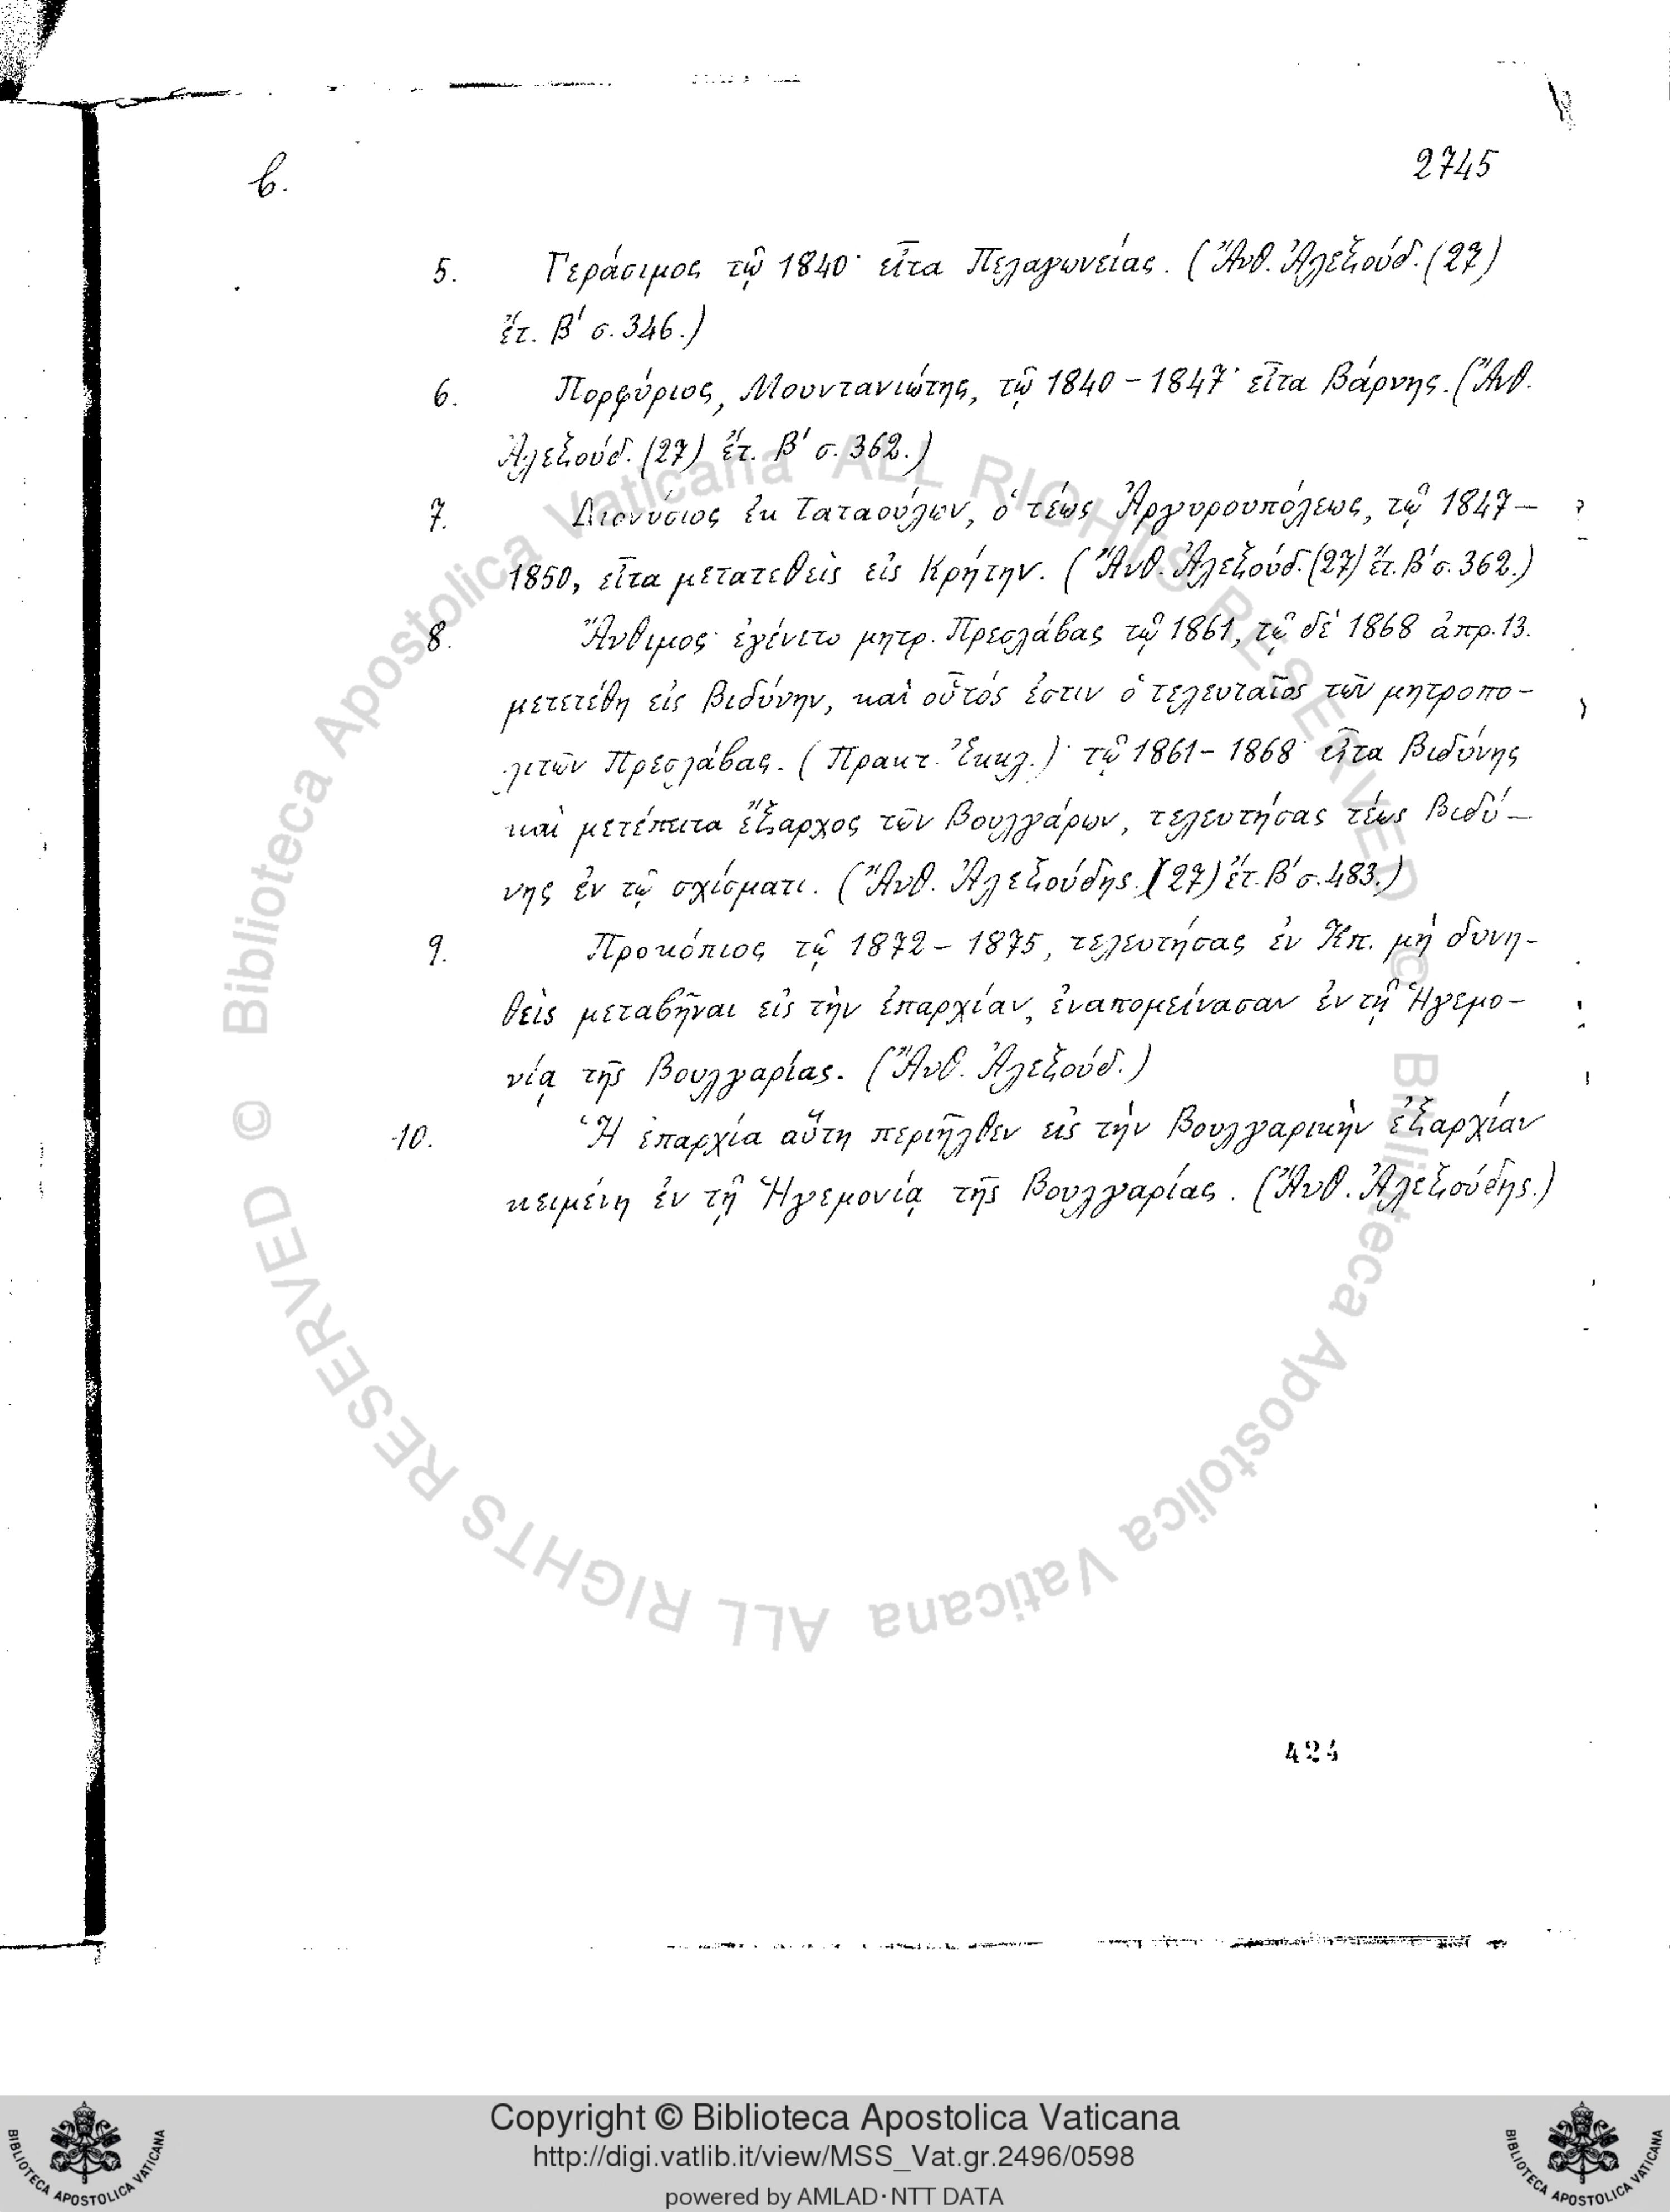 6.
2745
5. Γεράσιμος τῷ 1840· εἶτα Πελαγωνείας. (Ἄνθ. Ἀλεξούδ. (27)
ἔτ. Β' σ. 346.)
6. Πορφύριος, Μουντανιώτης, τῷ 1840 - 1847· εἶτα Βάρνης. (Ἄνθ.
Ἀλεξούδ. (27) ἔτ. Β' σ. 362.)
7. Διονύσιος ἐκ Ταταούλων, ὁ τέως Ἀργυρουπόλεως, τῷ 1847 -
1850, εἶτα μετατεθεὶς εἰς Κρήτην. (Ἄνθ. Ἀλεξούδ. (27) ἔτ. Β' σ. 362.)
8. Ἄνθιμος· ἐγένετο μητρ. Πρεσλάβας τῷ 1861, τῷ δὲ 1868 ἀπρ. 13.
μετετέθη εἰς Βιδύνην, καὶ οὗτός ἐστιν ὁ τελευταῖος τῶν μητροπο-
λιτῶν Πρεσλάβας. (Πρακτ. Ἐκκλ.)· τῷ 1861 - 1868· εἶτα Βιδύνης
καὶ μετέπειτα ἔξαρχος τῶν Βουλγάρων, τελευτήσας τέως Βιδύ-
νης ἐν τῷ σχίσματι. (Ἄνθ. Ἀλεξούδης. (27) ἔτ. Β' σ. 483.)
9. Προκόπιος τῷ 1872 - 1875, τελευτήσας ἐν Κπ. μὴ δυνη-
θεὶς μεταβῆναι εἰς τὴν ἐπαρχίαν, ἐναπομείνασαν ἐν τῇ Ἡγεμο-
νίᾳ τῆς Βουλγαρίας. (Ἄνθ. Ἀλεξούδ.)
10. Ἡ ἐπαρχία αὕτη περιῆλθεν εἰς τὴν Βουλγαρικὴν ἐξαρχίαν
κειμένη ἐν τῇ Ἡγεμονίᾳ τῆς Βουλγαρίας. (Ἄνθ. Ἀλεξούδης.)
424
© Biblioteca Apostolica Vaticana ALL RIGHTS RESERVED
© Biblioteca Apostolica Vaticana ALL RIGHTS RESERVED
Copyright © Biblioteca Apostolica Vaticana
http://digi.vatlib.it/view/MSS_Vat.gr.2496/0598
powered by AMLAD·NTT DATA
BIBLIOTECA APOSTOLICA VATICANA
BIBLIOTECA APOSTOLICA VATICANA